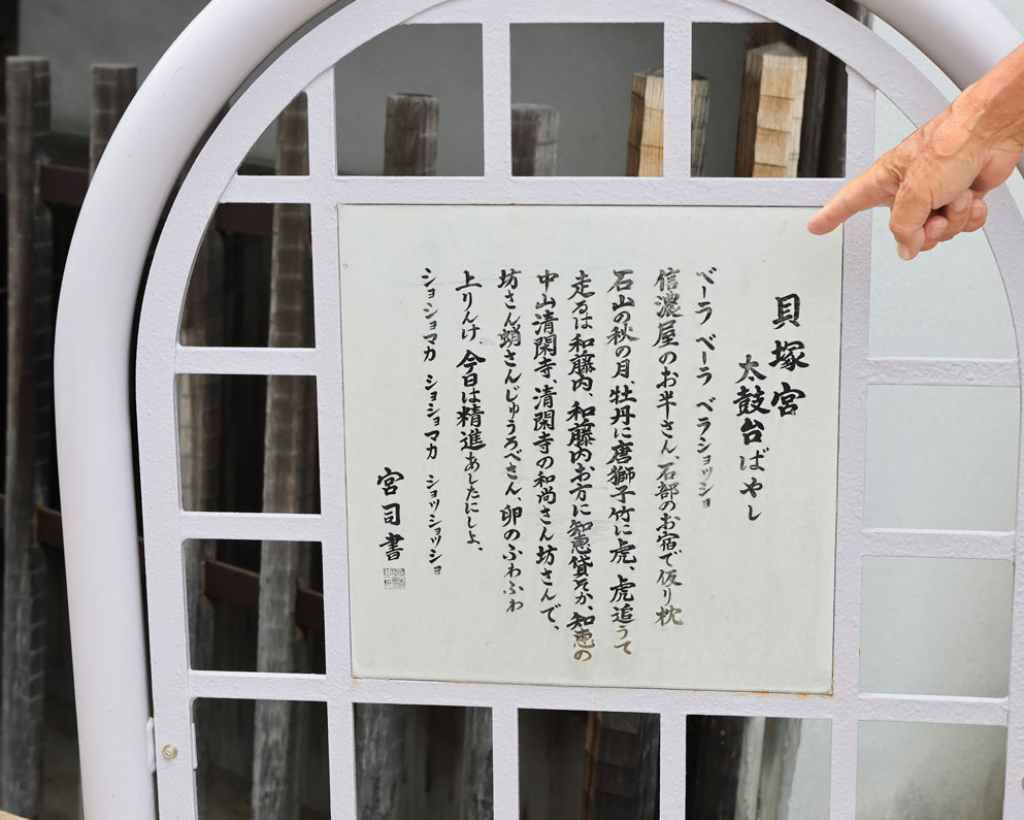 貝塚宮
太鼓台ばやし
ベーラ ベーラ ベラショッショ
信濃屋のお半さん、石部のお宿で仮り枕
石山の秋の月、牡丹に唐獅子竹に虎、虎追うて
走るは和藤内、和藤内お方に知恵貸そか、知恵の
中山清閑寺、清閑寺の和尚さん坊さんで、
坊さん蛸さんじゅうろべさん、卵のふわふわ
上りんけ、今日は精進あしたにしよ、
ショショマカ ショショマカ ショッショッショ
宮司書